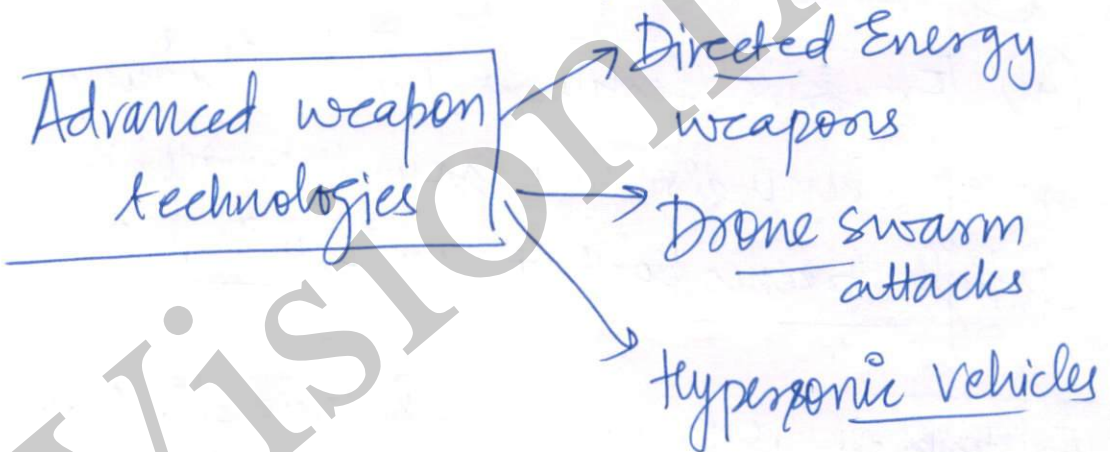 Advanced weapon
technologies
Directed Energy
weapons
Drone swarm
attacks
Hypersonic vehicles
Vision